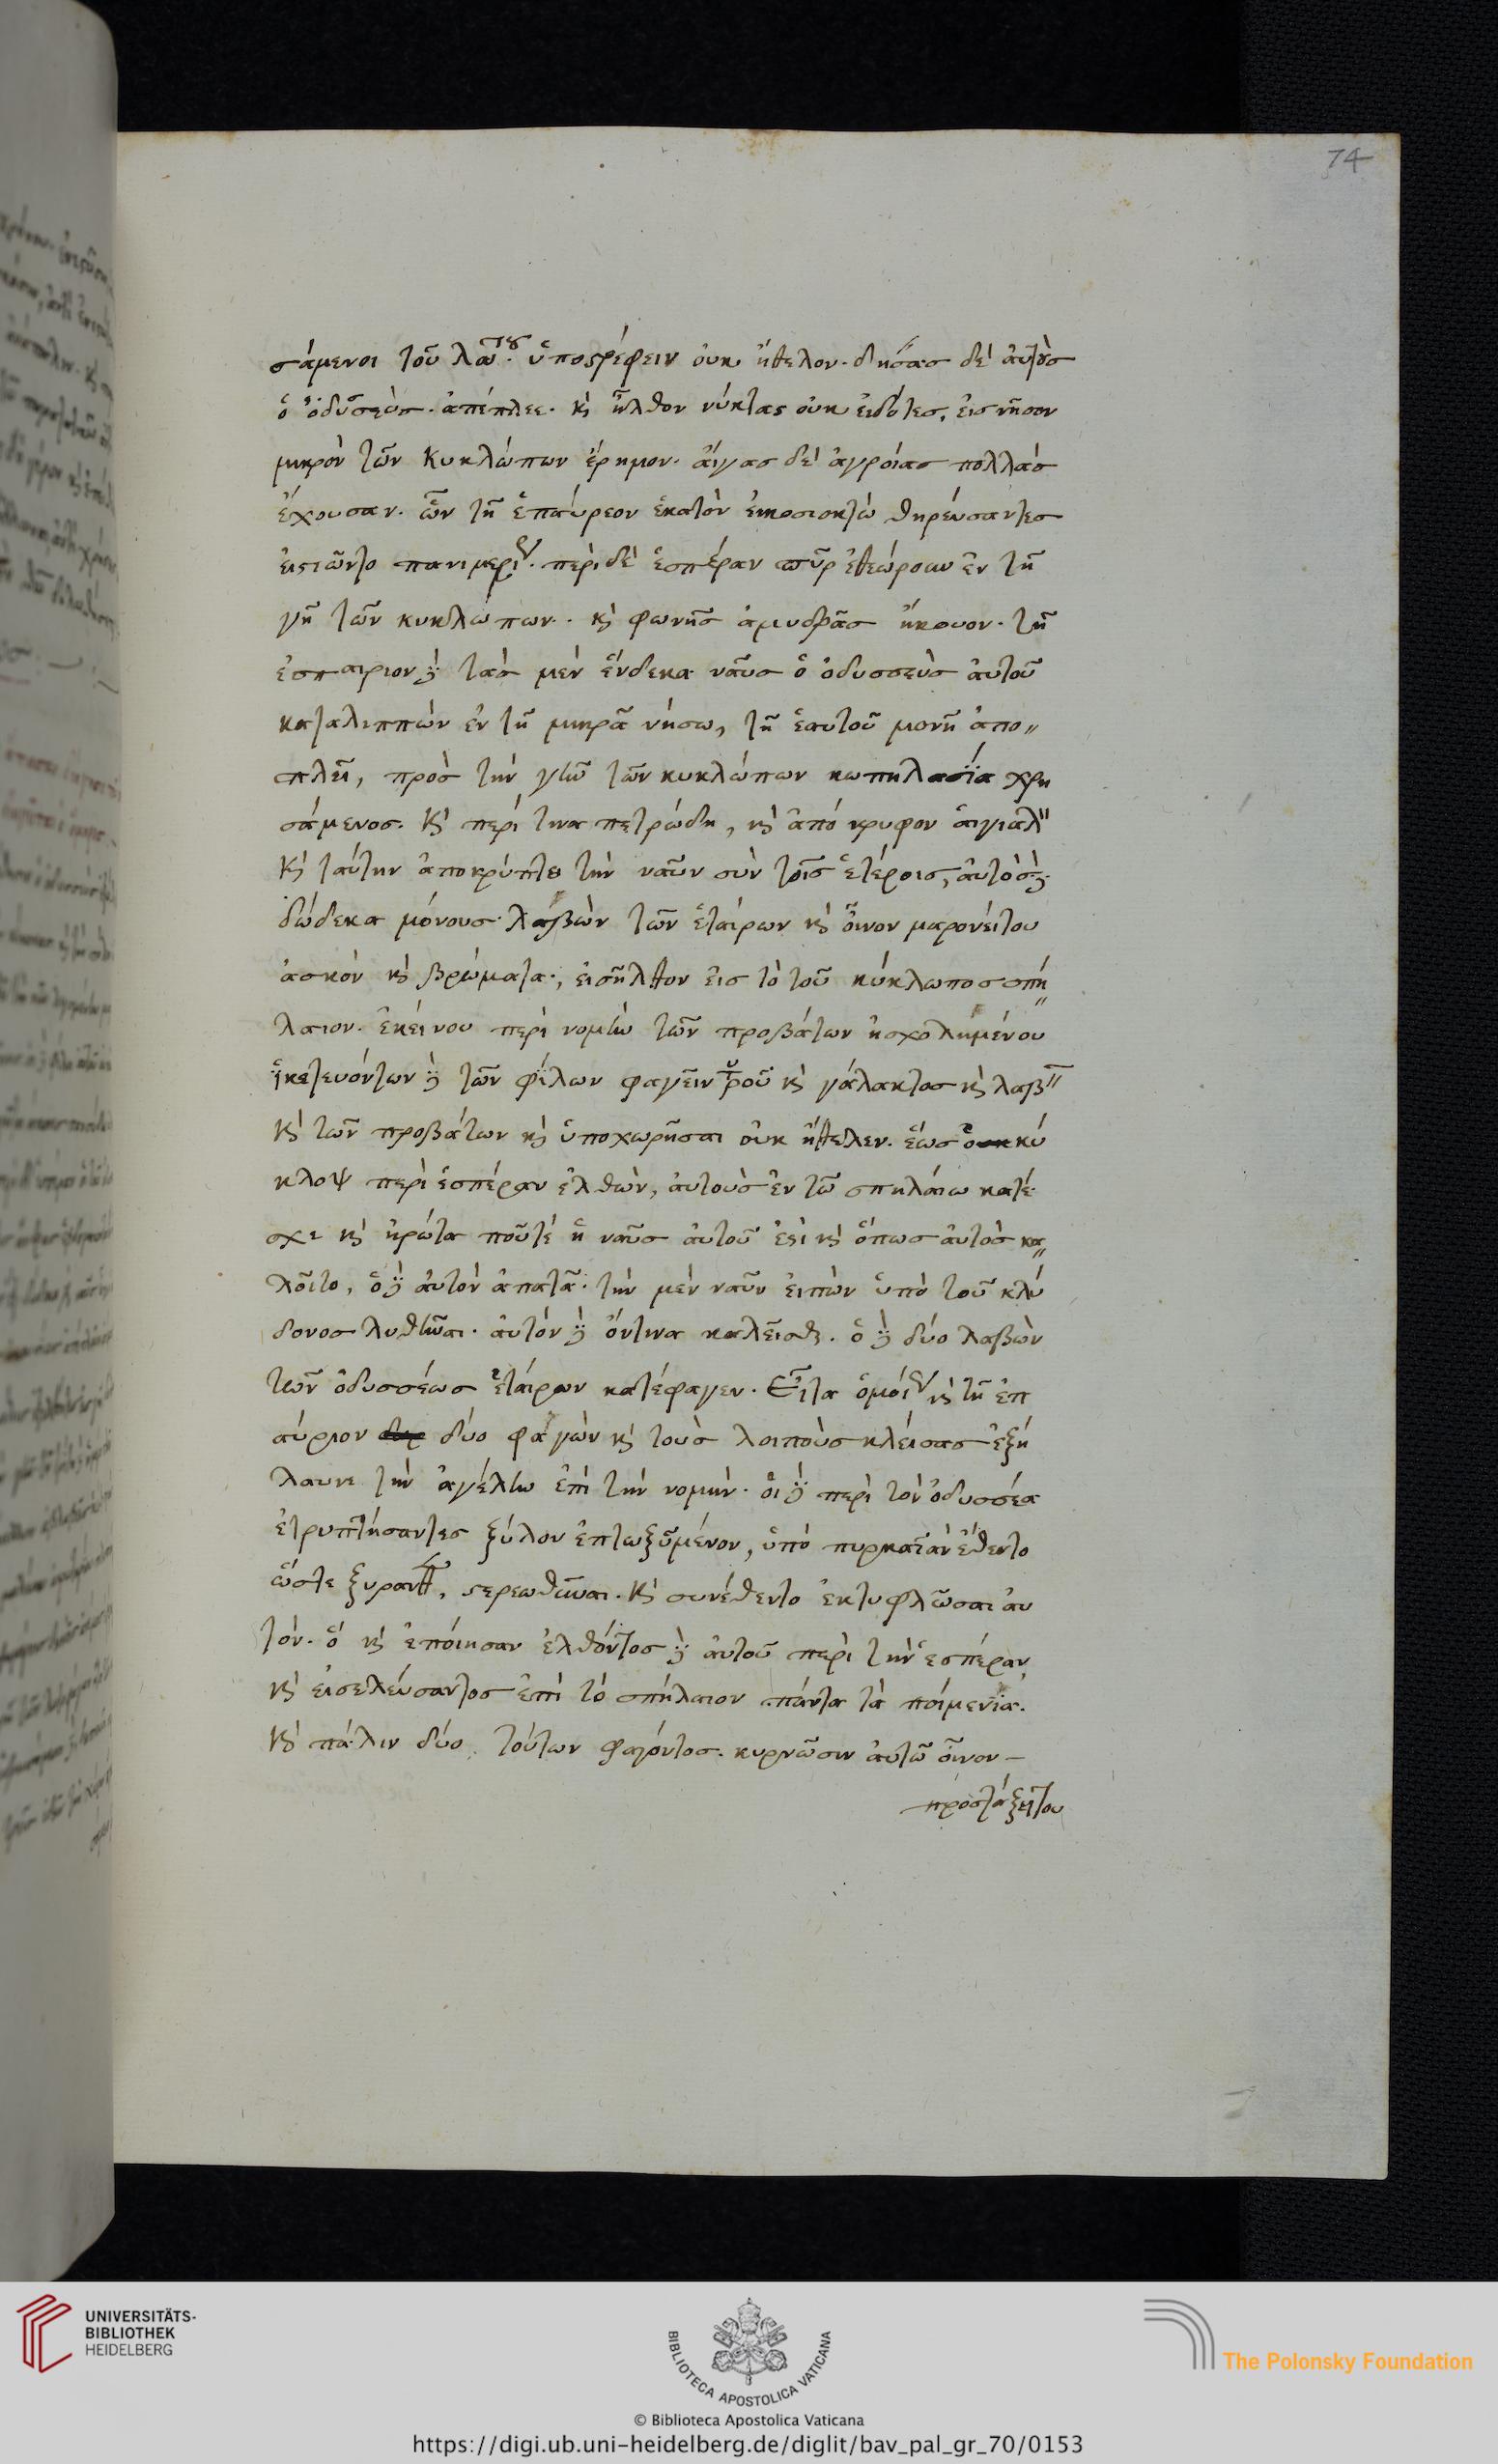 74
σάμενοι τοῦ λωτοῦ. ὑποστρέφειν οὐκ ἤθελον. δησας δὲ αὐτοὺς
ὁ ὀδυσσεὺς. ἀπέπλεε. κὶ ἦλθον νύκτας οὐκ εἰδότες, εἰς νῆσον
μικρὸν τῶν κυκλώπων ἔρημον. αἴγας δὲ ἀγροίας πολλὰς
ἔχουσαν. ὧν τῇ ἐπαύρεον ἑκατὸν ἐικοσιοκτὼ θηρεύσαντες
εἰστιῶντο πανιμέριοι. περὶ δὲ ἑσπέραν πῦρ ἐθεώρουν ἐν τῇ
γῇ τῶν κυκλώπων. κὶ φωνῆς ἀμυδρᾶς ἤκουον. τῇ
ἐσπαιριον δὲ τὰς μὲν ἕνδεκα ναῦς ὁ ὀδυσσεὺς αὐτοῦ
καταλιππὼν ἐν τῇ μικρᾷ νήσω, τῇ ἑαυτοῦ μονῇ ἀπο〃
πλεῖ, πρὸς τὴν γῆν τῶν κυκλώπων κωπηλασΐα χρη
σάμενος. κὶ περί τινα πετρώδη, κὶ ἀπόκρυφον αἰγιαλὸν
κὶ ταύτην ἀποκρύπτει τὴν ναῦν σὺν τοῖς ἑτέροις, αὐτὸς δὲ
δώδεκα μόνους λαβὼν τῶν ἑταίρων κὶ οἶνον μαρονείτου
ἀσκὸν κὶ βρώματα., εἰσῆλθον εἰς τὸ τοῦ κύκλωπος σπή〃
λαιον. ἐκείνου περὶ νομὴν τῶν προβάτων ἠσχολημένου
ἱκετευόντων δὲ τῶν φίλων φαγεῖν τυροῦ κὶ γάλακτος κὶ λαβεῖν
κὶ τῶν προβάτων κὶ ὑποχωρῆσαι οὐκ ἤθελεν. ἕως ὁ κύ
κλοψ περὶ ἑσπέραν ἐλθὼν, αὐτοὺς ἐν τῶ σπηλαίω κατέ
σχε κὶ ἠρώτα ποῦτέ ἡ ναῦς αὐτοῦ ἐστὶ κὶ ὅπως αὐτὸς κα〃
λοῖτο, ὁ δὲ αὐτὸν ἀπατᾶ. τὴν μὲν ναῦν εἰπὼν ὑπὸ τοῦ κλύ
δονος λυθῆναι. αὐτὸν δὲ ὄντινα καλεῖσθαι. ὁ δὲ δύο λαβὼν
τῶν ὀδυσσέως ἑταίρων κατέφαγεν. Εἶτα ὁμοίως κὶ τῇ ἐπ
αύριον δύο φαγὼν κὶ τοὺς λοιποὺς κλείσας ἐξή
λαυνε τὴν ἀγέλην ἐπὶ τὴν νομήν. οἱ δὲ περὶ τὸν ὀδυσσέα
ἐτρυπτήσαντες ξύλον ἐπωξυμένον, ὑπὸ πυρκαϊὰν ἔθεντο
ὥστε ξυρανθὲν, στερεωθῆναι. κὶ συνέθεντο ἐκτυφλῶσαι αὐ
τόν. ὃ κὶ ἐποίησαν ἐλθόντος δὲ αὐτοῦ περὶ τὴν ἑσπέραν,
κὶ εἰσελεύσαντος ἐπὶ τὸ σπήλαιον πάντα τὰ ποίμενια.
κὶ πάλιν δύο τούτων φαγόντος. κυρνῶσιν αὐτῶ οἶνον –
προστάξει του
UNIVERSITÄTS-
BIBLIOTHEK
HEIDELBERG
BIBLIOTECA APOSTOLICA VATICANA
The Polonsky Foundation
© Biblioteca Apostolica Vaticana
https://digi.ub.uni-heidelberg.de/diglit/bav_pal_gr_70/0153